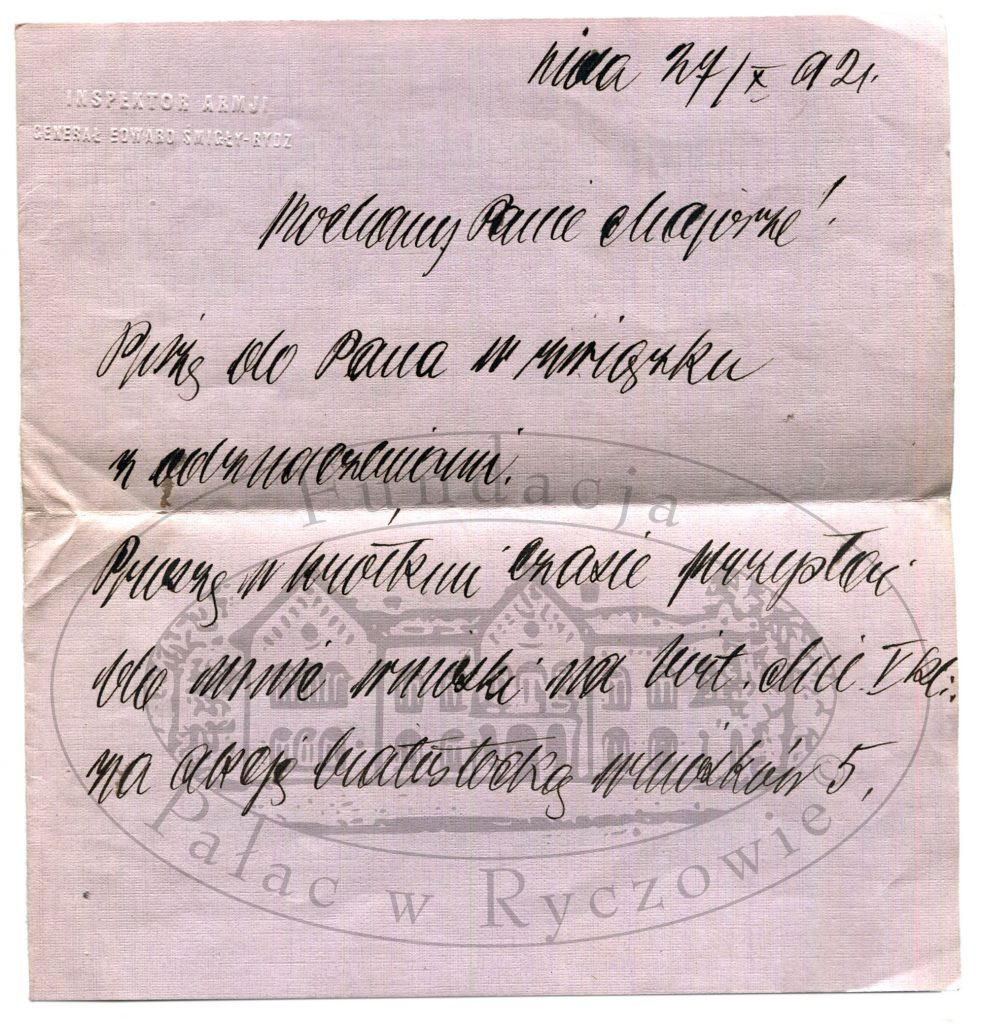 27/X 921.
INSPEKTOR ARMJI
GENERAŁ EDWARD ŚMIGŁY-RYDZ
Kochany Panie Majorze!
Piszę do Pana w związku
z odznaczeniami.
Proszę w krótkim czasie przesłać
do mnie wnioski na Virt. Mil. V kl.:
za akcję białostocką wniosków 5,
Fundacja
Pałac w Ryczowie